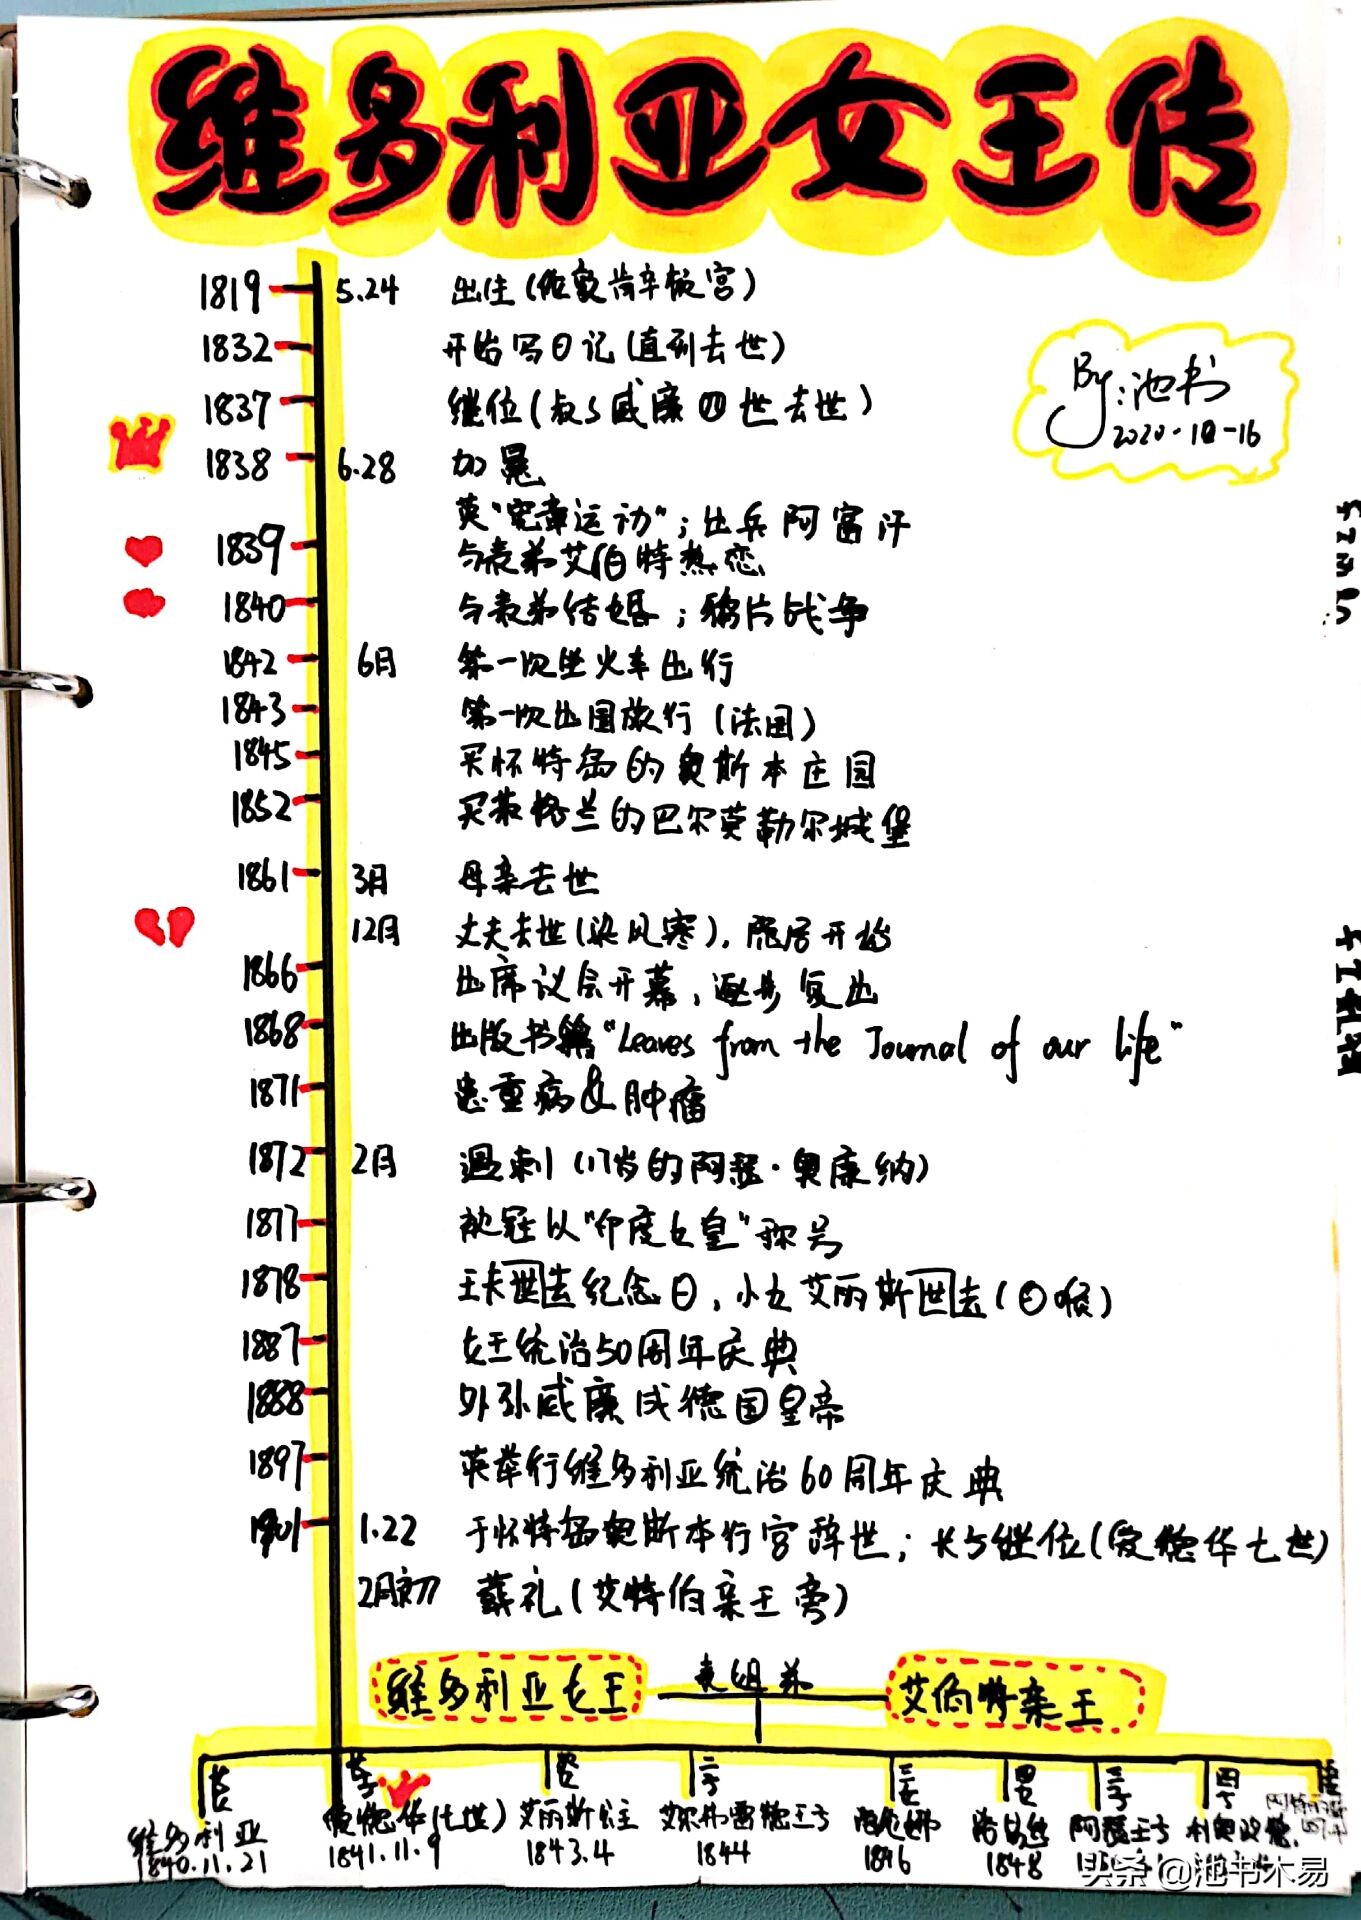 维多利亚女王传
By:池书
2020.10-16
1819 5.24 出生(伦敦肯辛顿宫)
1832 开始写日记(直到去世)
1837 继位(叔5威廉四世去世)
1838 6.28 加冕
英"宪章运动";出兵阿富汗
1839 与表弟艾伯特热恋
1840 与表弟结婚;鸦片战争
1842 6月 第一次坐火车出行
1843 第一次出国旅行(法国)
1845 买怀特岛的奥斯本庄园
1852 买苏格兰的巴尔莫勒尔城堡
1861 3月 母亲去世
12月 丈夫去世(染风寒),隐居开始
1866 出席议会开幕,逐步复出
1868 出版书籍"Leaves from the Journal of our life"
1871 患重病&肿瘤
1872 2月 遇刺(17岁的阿瑟·奥康纳)
1877 被冠以"印度女皇"称号
1878 王夫世去纪念日,小女艾丽斯世去(白喉)
1887 女王统治50周年庆典
1888 外孙威廉成德国皇帝
1897 英举行维多利亚统治60周年庆典
1901 1.22 于怀特岛奥斯本行宫辞世;长5继位(爱德华七世)
2月初 葬礼(艾特伯亲王旁)
维多利亚女王 表姐弟 艾伯特亲王
长女 长子 次女 二子 三女 四女 三子 四子
维多利亚 爱德华(七世) 艾丽斯公主 艾尔弗雷德王5 海伦娜 路易丝 阿瑟王5 利奥波德
1840.11.21 1841.11.9 1843.4 1844 1846 1848
头条 @池书木易